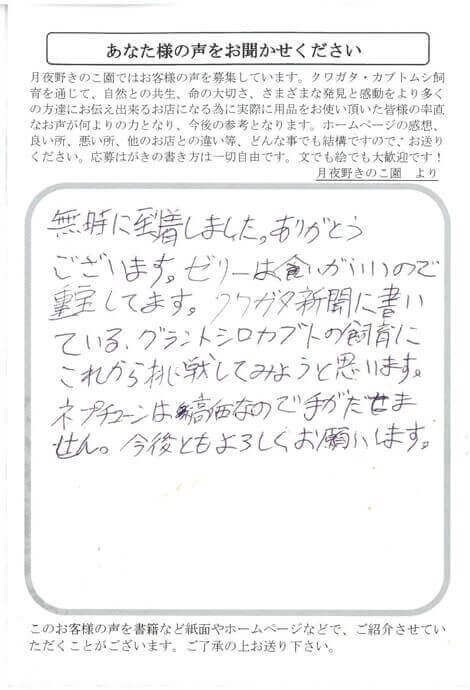 あなた様の声をお聞かせください
月夜野きのこ園ではお客様の声を募集しています。クワガタ・カブトムシ飼
育を通じて、自然との共生、命の大切さ、さまざまな発見と感動をより多く
の方達にお伝え出来るお店になる為に実際に用品をお使い頂いた皆様の率直
なお声が何よりの力となり、今後の参考となります。ホームページの感想、
良い所、悪い所、他のお店との違い等、どんな事でも結構ですので、お送り
ください。応募はがきの書き方は一切自由です。文でも絵でも大歓迎です！
月夜野きのこ園　より
無時に到着しました。ありがとう
ございます。ゼリーは食いがいいので
重宝してます。クワガタ新聞に書い
ている、グラントシロカブトの飼育に
これから挑戦してみようと思います。
ネプチューンは高価なので手がだせま
せん。今後ともよろしくお願いします。
このお客様の声を書籍など紙面やホームページなどで、ご紹介させてい
ただくことがございます。ご了承の上お送り下さい。